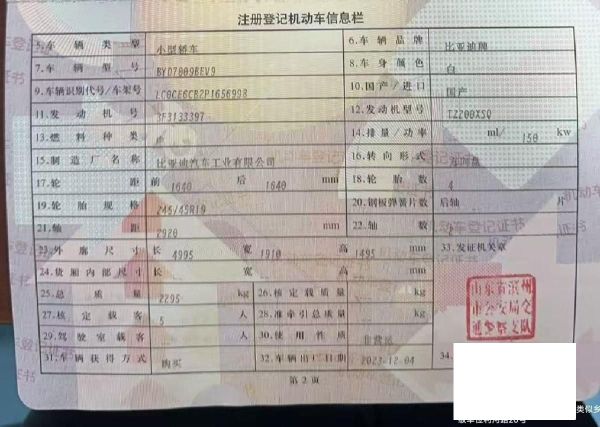 注册登记机动车信息栏
5.车辆类型 小型轿车 6.车辆品牌 比亚迪牌
7.车辆型号 BYD7009BEV9 8.车身颜色 白
9.车辆识别代号/车架号 10.国产/进口 国产
11.发动机号 3F3133397 12.发动机型号 TZ200XSQ
13.燃料种类 电 14.排量/功率 ml/ 150 kw
15.制造厂名称 比亚迪汽车工业有限公司 16.转向形式 方向盘
17.轮距 前 1640 后 1640 mm 18.轮胎数 4
19.轮胎规格 245/45R19 20.钢板弹簧片数 后轴 片
21.轴距 2920 mm 22.轴数 2
23.外廓尺寸 长 4995 宽 1910 高 1495 mm 33.发证机关章
24.货厢内部尺寸 长 宽 高 mm
25.总质量 2295 kg 26.核定载质量 kg
27.核定载客 5 人 28.准牵引总质量 kg
29.驾驶室载客 人 30.使用性质 非营运
31.车辆获得方式 购买 32.车辆出厂日期 2023-12-04 34.
山东省滨州
市公安局交
通警察支队
第2页
类似乡